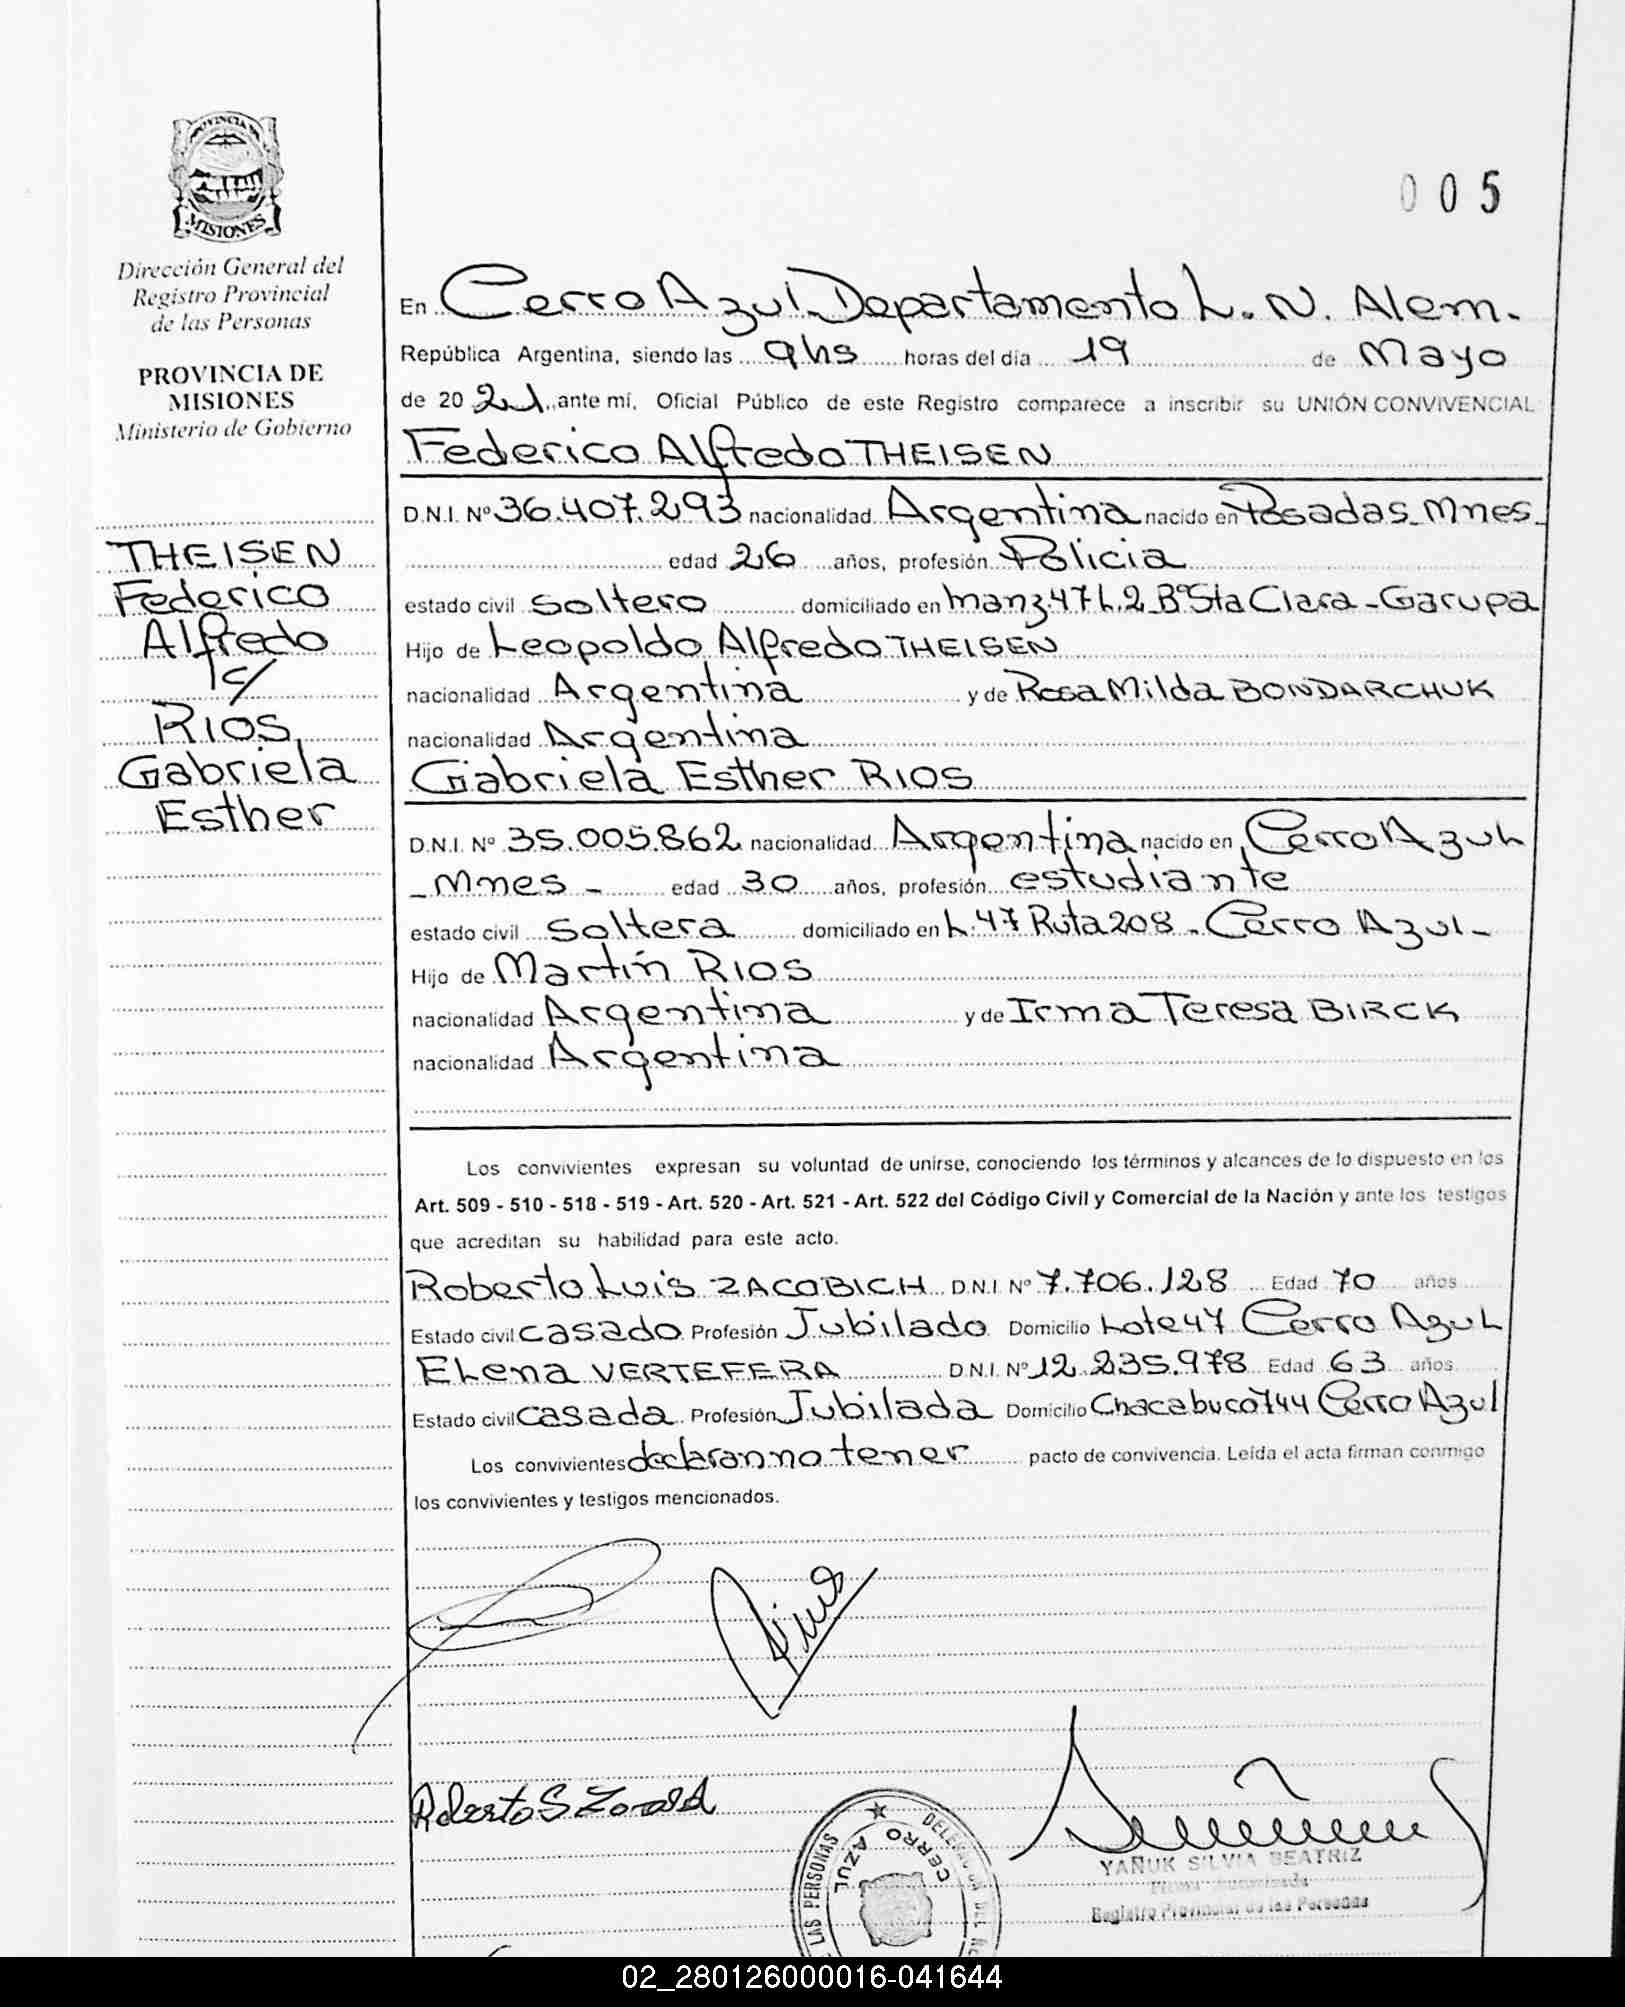 PROVINCIA DE
MISIONES
Dirección General del
Registro Provincial
de las Personas
PROVINCIA DE
MISIONES
Ministerio de Gobierno
THEISEN
Federico
Alfredo
c/
RIOS
Gabriela
Esther
005
En Cerro Azul Departamento L. N. Alem.
República Argentina, siendo las 9hs horas del día 19 de Mayo
de 2021, ante mí, Oficial Público de este Registro comparece a inscribir su UNIÓN CONVIVENCIAL
Federico Alfredo THEISEN
D.N.I. Nº 36.407.293 nacionalidad Argentina nacido en Posadas_Mnes_
edad 26 años, profesión Policia
estado civil soltero domiciliado en manz.47 L.2_Bº Sta Clara - Garupa
Hijo de Leopoldo Alfredo THEISEN
nacionalidad Argentina y de Rosa Milda BONDARCHUK
nacionalidad Argentina
Gabriela Esther RIOS
D.N.I. Nº 35.005.862 nacionalidad Argentina nacido en Cerro Azul
_Mnes_ edad 30 años, profesión estudiante
estado civil soltera domiciliado en L.47 Ruta 208 - Cerro Azul -
Hijo de Martín RIOS
nacionalidad Argentina y de Irma Teresa BIRCK
nacionalidad Argentina
Los convivientes expresan su voluntad de unirse, conociendo los términos y alcances de lo dispuesto en los
Art. 509 - 510 - 518 - 519 - Art. 520 - Art. 521 - Art. 522 del Código Civil y Comercial de la Nación y ante los testigos
que acreditan su habilidad para este acto.
Roberto Luis ZACOBICH D.N.I. Nº 7.706.128 Edad 70 años
Estado civil casado Profesión Jubilado Domicilio Lote 47 Cerro Azul
Elena VERTEFERA D.N.I. Nº 12.235.978 Edad 63 años
Estado civil casada Profesión Jubilada Domicilio Chacabuco 744 Cerro Azul
Los convivientes declaran no tener pacto de convivencia. Leída el acta firman conmigo
los convivientes y testigos mencionados.
Rios
Roberto
LAS PERSONAS
DELEGACION DEL
CERRO AZUL
YAÑUK SILVIA BEATRIZ
Firma Autorizada
Registro Provincial de las Personas
02_280126000016-041644